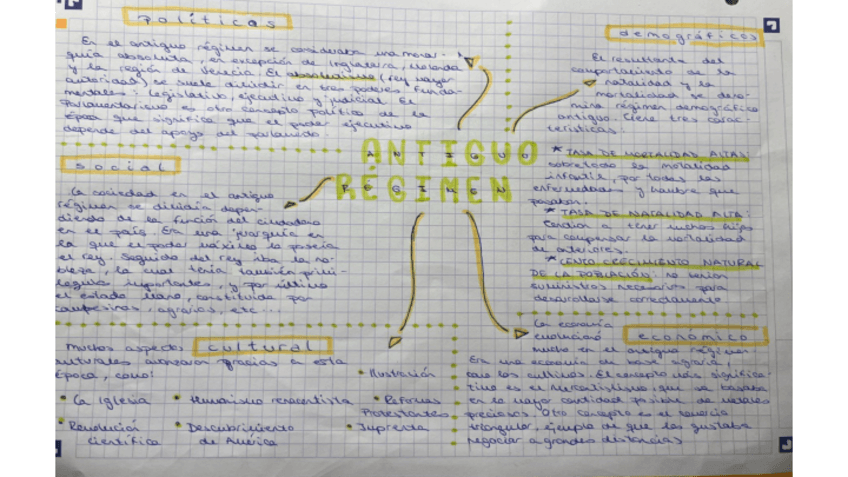 políticas
En el antiguo régimen se consideraba una monar-
quía absoluta, en excepción de Inglaterra, Holanda
y la región de Venecia. El absolutismo (rey mayor
autoridad) se suele dividir en tres poderes funda-
mentales: legislativo, ejecutivo y judicial. El
Parlamentarismo es otro concepto político de la
época que significa que el poder ejecutivo
depende del apoyo del parlamento.
demográficos
Es resultante del
comportamiento de la
natalidad y la
mortalidad se deno-
mina régimen demográfico
antiguo. Tiene tres carac-
terísticas:
* TASA DE MORTALIDAD ALTAS
sobretodo la mortalidad
infantil, por todas las
enfermedades y hambre que
pasaban.
* TASA DE NATALIDAD ALTA:
Tendían a tener muchos hijos
para compensar la mortalidad
de anteriores.
* LENTO CRECIMIENTO NATURAL
DE LA POBLACIÓN: no tenían
suministros necesarios para
desarrollarse correctamente
ANTIGUO
RÉGIMEN
social
La sociedad en el antiguo
régimen se dividía depen-
diendo de la función del ciudadano
en el país. Era una jerarquía en
la que el poder máximo lo poseía
el rey. Seguido del rey iba la no-
bleza, la cual tenía también privi-
legios importantes, y por último
el estado llano, constituida por
campesinos, agrarios, etc...
cultural
Muchos aspectos
culturales avanzaron gracias a esta
época, como:
• Ilustración
• La Iglesia
• Humanismo renacentista
• Reformas
Protestantes
• Revolución
científica
• Descubrimiento
de América
• Imprenta
económico
La economía
evolucionó
mucho en el antiguo régimen.
Era una economía de base agraria,
con los cultivos. El concepto más significa-
tivo es el mercantilismo, que se basaba
en la mayor cantidad posible de metales
preciosos. Otro concepto es el comercio
triangular, ejemplo de que les gustaba
negociar a grandes distancias